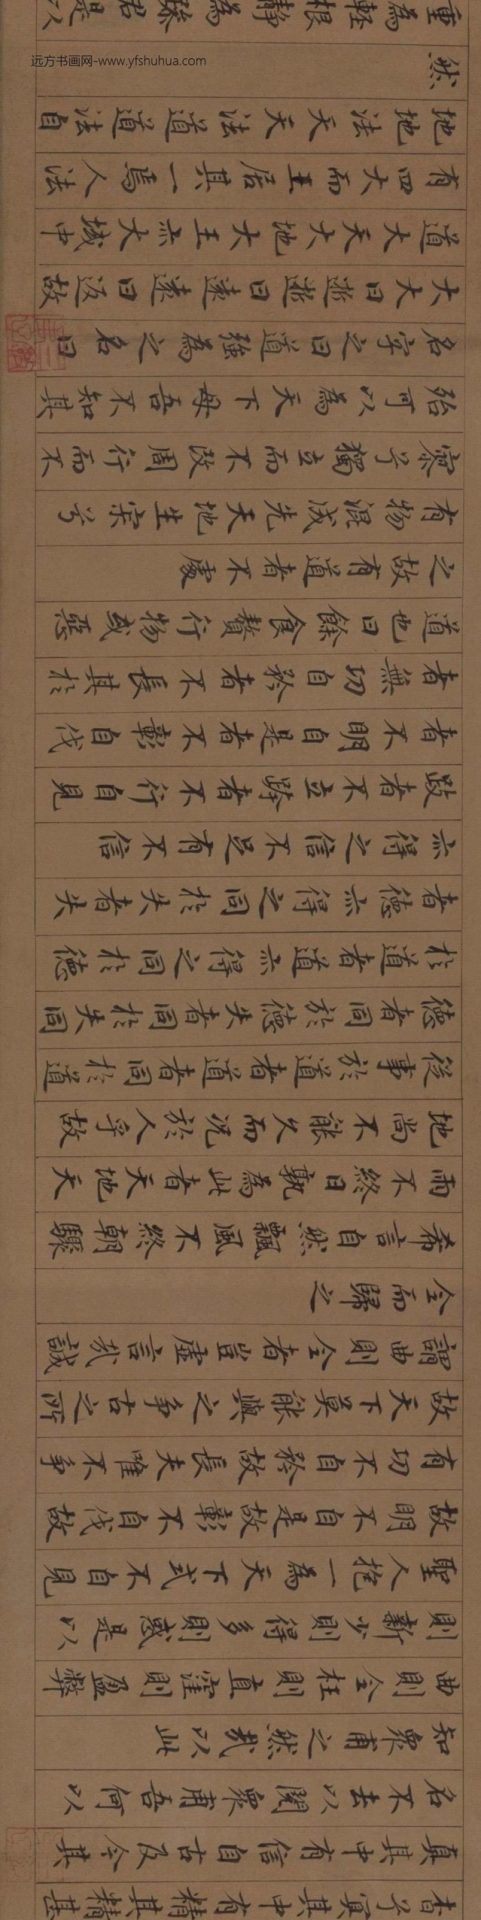 杳兮冥其中有精其精甚
真其中有信自古及今其
名不去以閱衆甫吾何以
知衆甫之然哉以此
曲則全枉則直窪則盈弊
則新少則得多則惑是以
聖人抱一為天下式不自見
故明不自是故彰不自伐故
有功不自矜故長夫唯不爭
故天下莫能與之爭古之所
謂曲則全者豈虛言哉誠
全而歸之
希言自然飄風不終朝驟
雨不終日孰為此者天地天
地尚不能久而況於人乎故
從事於道者道者同於道
德者同於德失者同於失同
於道者道亦得之同於德
者德亦得之同於失者失
亦得之信不足有不信
跂者不立跨者不行自見
者不明自是者不彰自伐
者無功自矜者不長其於
道也曰餘食贅行物或惡
之故有道者不處
有物混成先天地生寂兮
寥兮獨立而不改周行而不
殆可以為天下母吾不知其
名字之曰道強為之名曰
大大曰逝逝曰遠遠曰返故
道大天大地大王亦大域中
有四大而王居其一焉人法
地地法天天法道道法自
然
重為輕根靜為躁君是以
远方书画网-www.yfshuhua.com